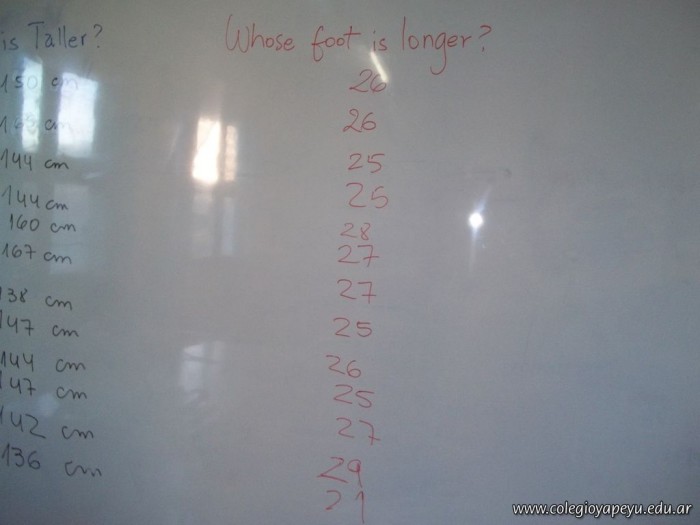 is Taller?
150 cm
cm
144 cm
144 cm
160 cm
167 cm
138 cm
147 cm
144 cm
147 cm
142 cm
136 cm
Whose foot is longer?
26
26
25
25
28
27
27
25
26
25
27
29
www.colegioyapeyu.edu.ar